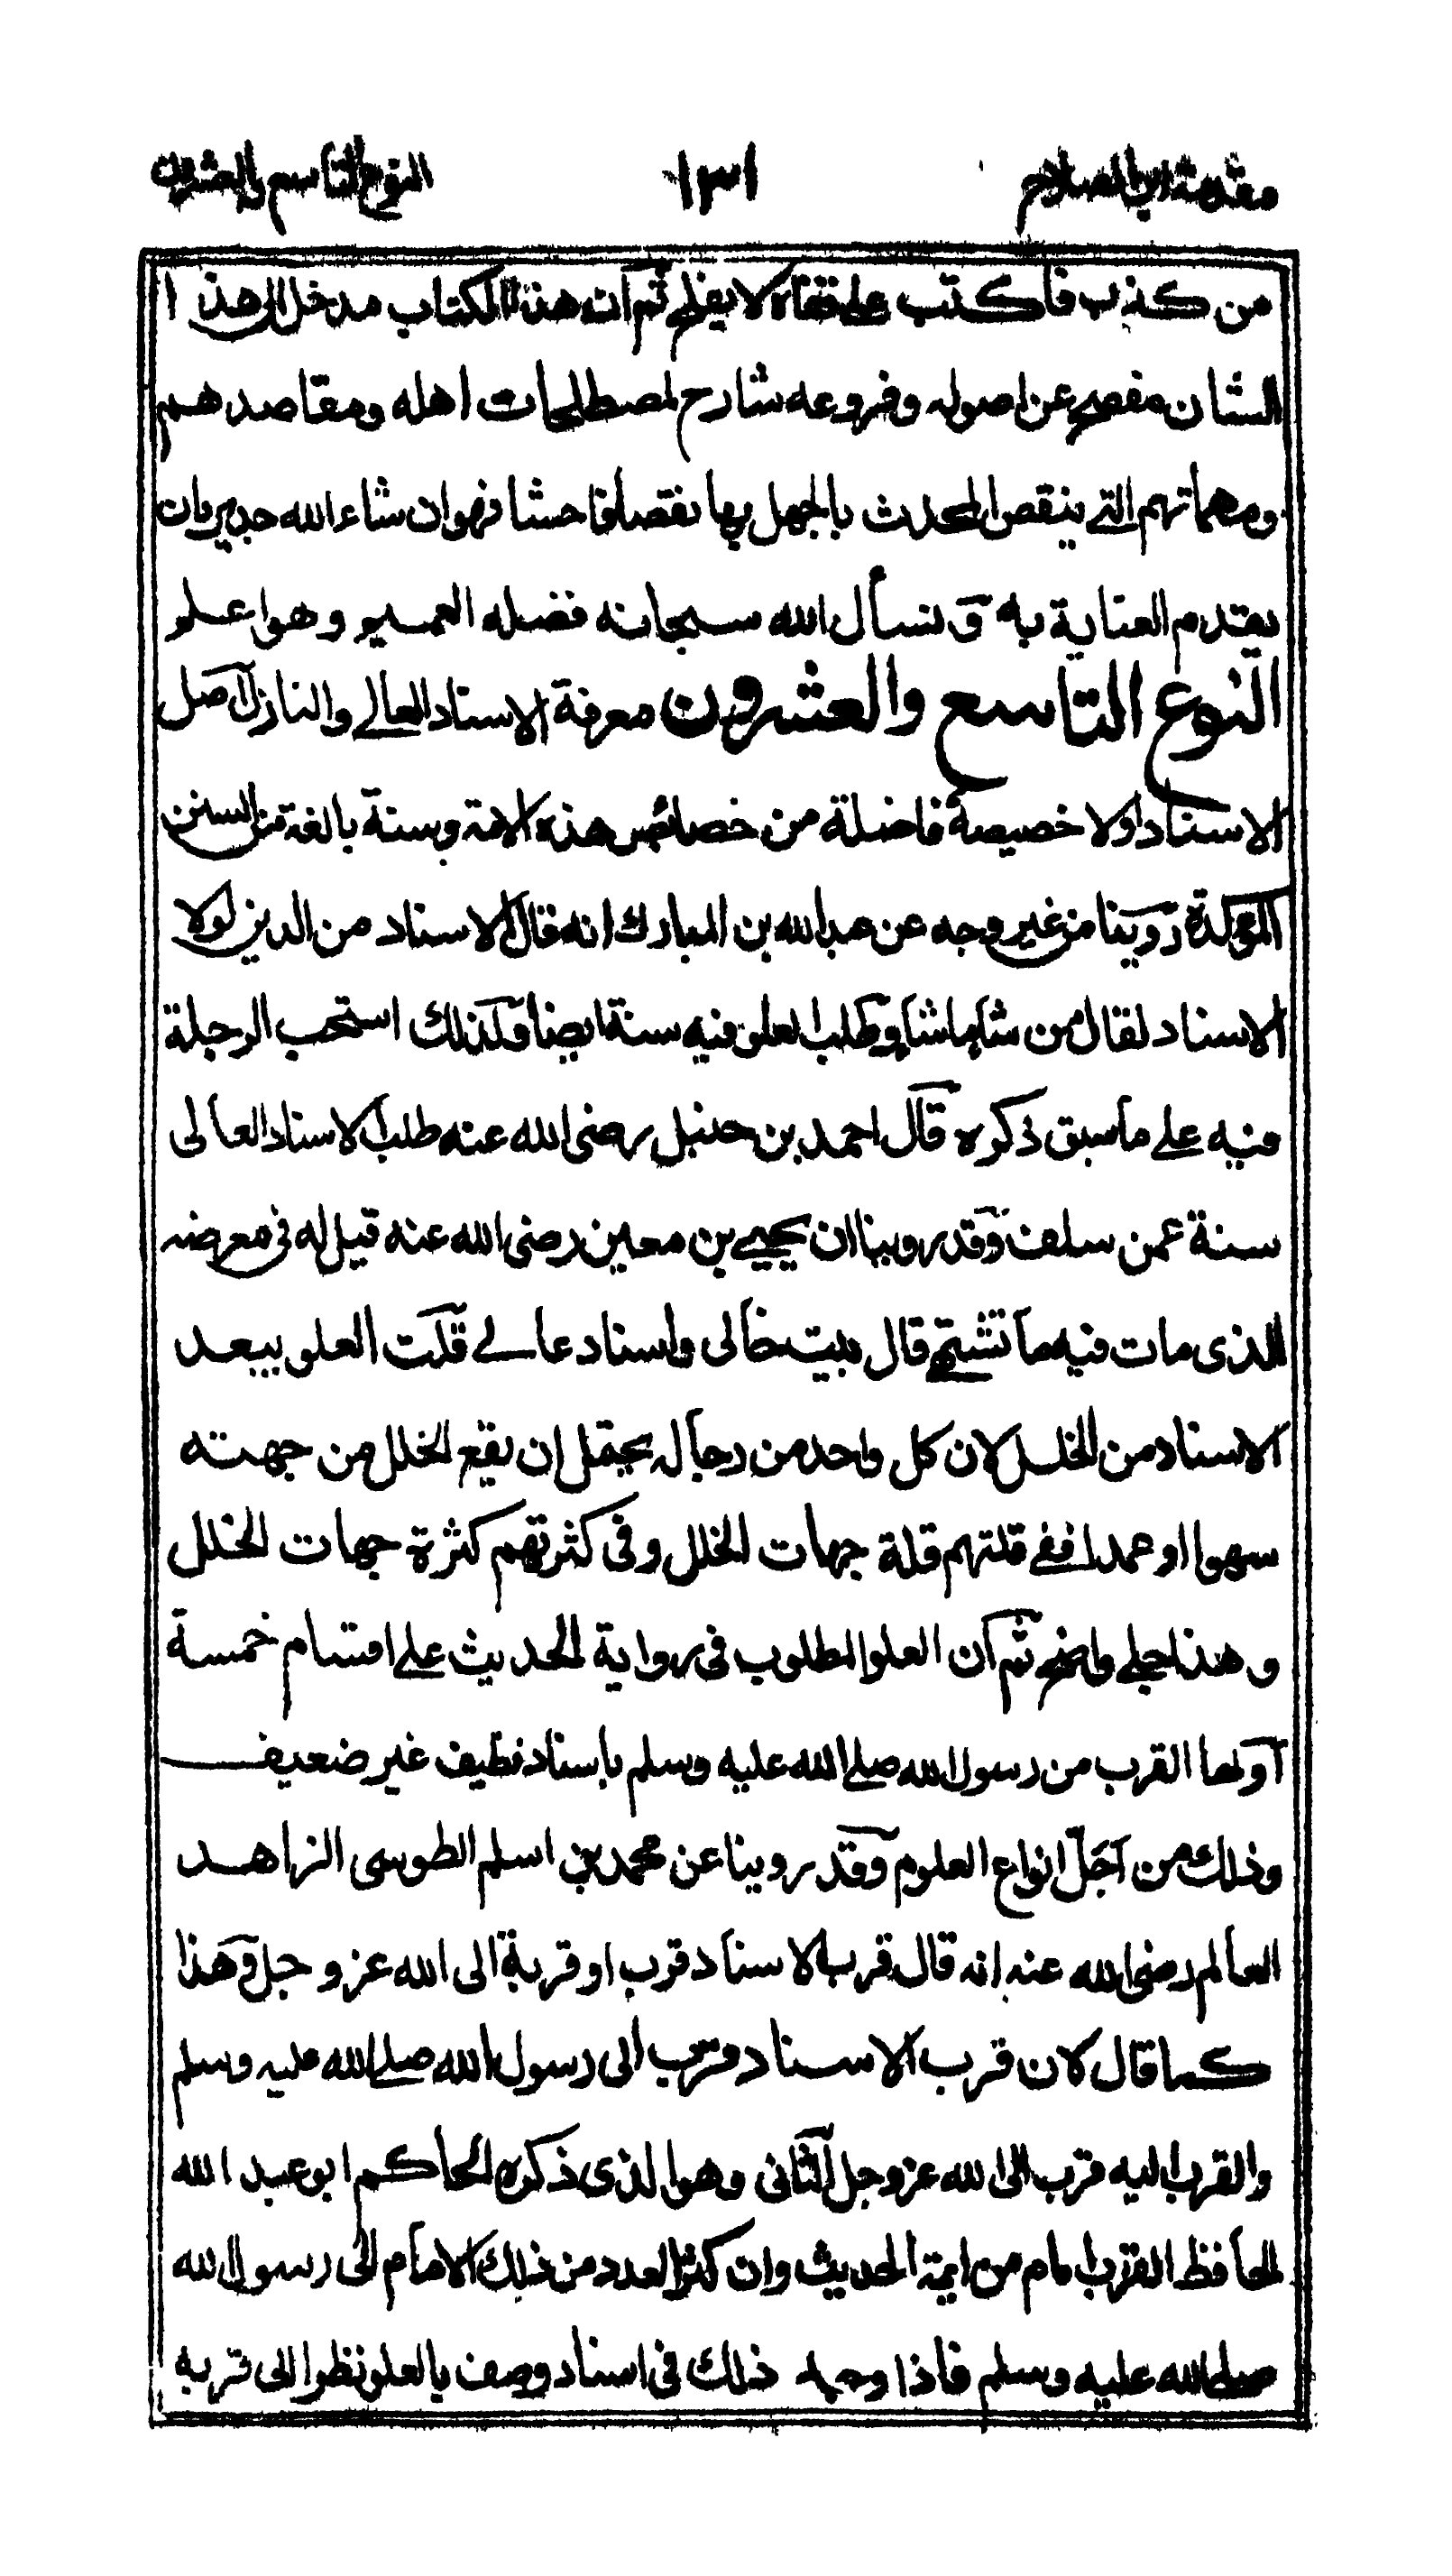 مقدمة ابن الصلاح ١٣١ النوع التاسع والعشرون
من كذب فاكتب على قفاه لا يفلح ثم ان هذا الكتاب مدخل الى هذا
الشان مفصح عن اصوله وفروعه شارح لمصطلحات اهله ومقاصدهم
ومهماتهم التے ينقص المحدث بالجهل بها نقصا فاحشا فهو ان شاء الله جدير بان
يقدم العناية به ونسأل الله سبحانه فضله العميم وهو اعلم
النوع التاسع والعشرون معرفة الاسناد العالے والنازل اصل
الاسناد اولا خصيصة فاضلة من خصائص هذه الامة وسنة بالغة من السنن
المؤكدة روينا من غير وجه عن عبد الله بن المبارك انه قال الاسناد من الدين لولا
الاسناد لقال من شاء ما شاء وطلب العلو فيه سنة ايضا ولذلك استحب الرحلة
فيه علے ما سبق ذكره قال احمد بن حنبل رضى الله عنه طلب الاسناد العالى
سنة عمن سلف وقد روينا ان يحيے بن معين رضى الله عنه قيل له فى مرضه
الذى مات فيه ما تشتهے قال بيت خالى واسناد عالے قلت العلو يبعد
الاسناد من الخلل لان كل واحد من رجاله يحتمل ان يقع الخلل من جهته
سهوا او عمدا ففے قلتهم قلة جهات الخلل وفى كثرتهم كثرة جهات الخلل
وهذا جلے واضح ثم ان العلو المطلوب فى رواية الحديث علے اقسام خمسة
اولها القرب من رسول الله صلے الله عليه وسلم باسناد نظيف غير ضعيف
وذلك من اجلّ انواع العلوم وقد روينا عن محمد بن اسلم الطوسى الزاهد
العالم رضى الله عنه انه قال قرب الاسناد قرب او قربة الى الله عز وجل وهذا
كما قال لان قرب الاسناد قرب الى رسول الله صلے الله عليه وسلم
والقرب اليه قرب الى الله عز وجل الثانى وهو الذى ذكره الحاكم ابو عبد الله
الحافظ القرب لمام من ايمة الحديث وان كثر العدد من ذلك الامام الى رسول الله
صلے الله عليه وسلم فاذا وجد ذلك فى اسناد وصف بالعلو نظرا الى قربه